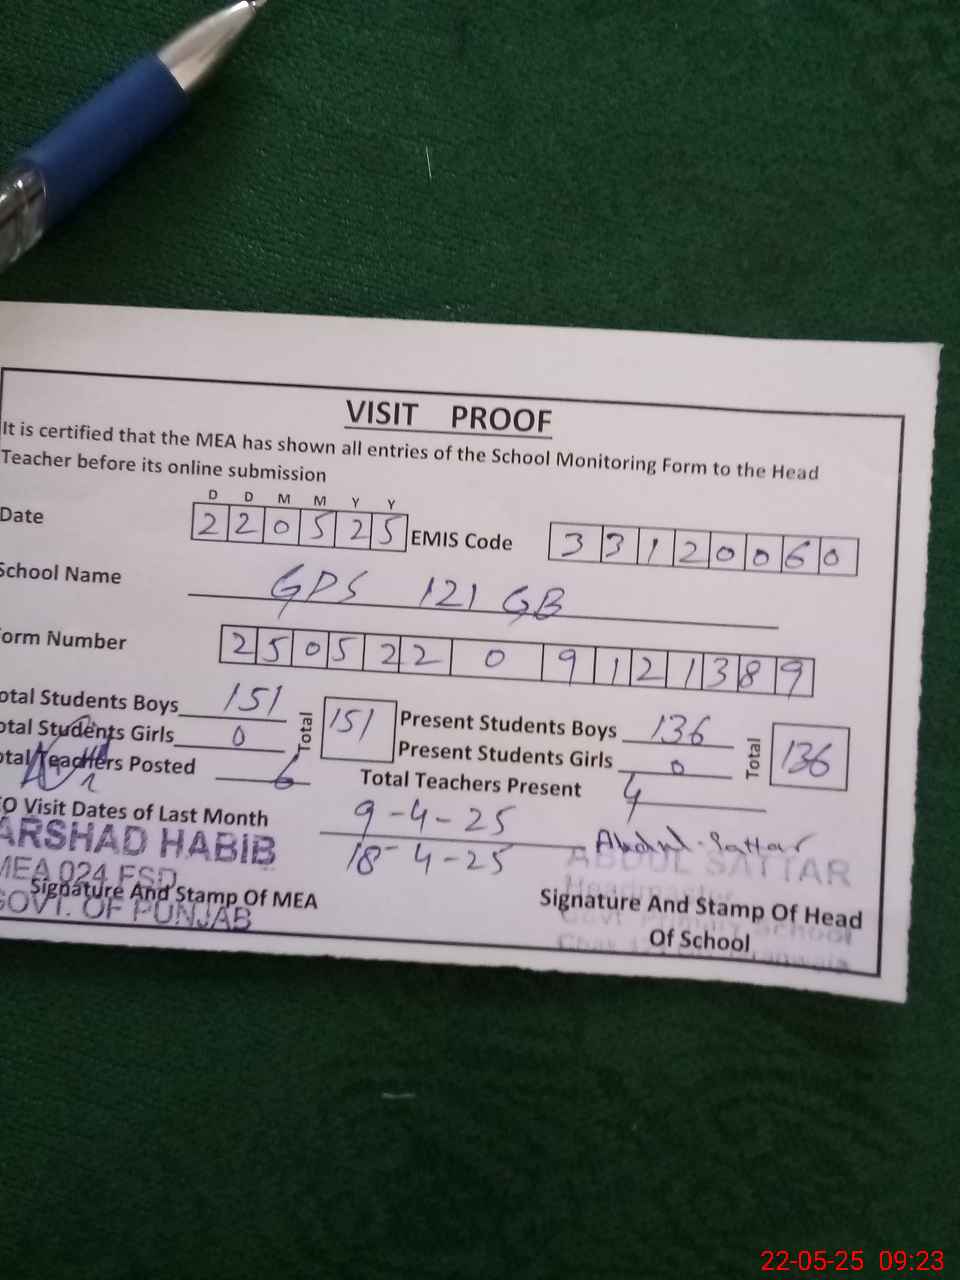 VISIT PROOF
It is certified that the MEA has shown all entries of the School Monitoring Form to the Head
Teacher before its online submission
D D M M Y Y
Date 2 2 0 5 2 5 EMIS Code 3 3 1 2 0 0 6 0
School Name GPS 121 GB
orm Number 2 5 0 5 2 2 0 9 1 2 1 3 8 9
otal Students Boys 151 Total 151 Present Students Boys 136 Total 136
otal Students Girls 0 Present Students Girls 0
otal Teachers Posted 6 Total Teachers Present 4
EO Visit Dates of Last Month 9-4-25
18-4-25
Abdul Sattar
ARSHAD HABIB ABDUL SATTAR
MEA 024 FSD Headmaster
Signature And Stamp Of MEA Signature And Stamp Of Head
GOVT. OF PUNJAB Govt. Primary School
Of School
Chak
22-05-25 09:23